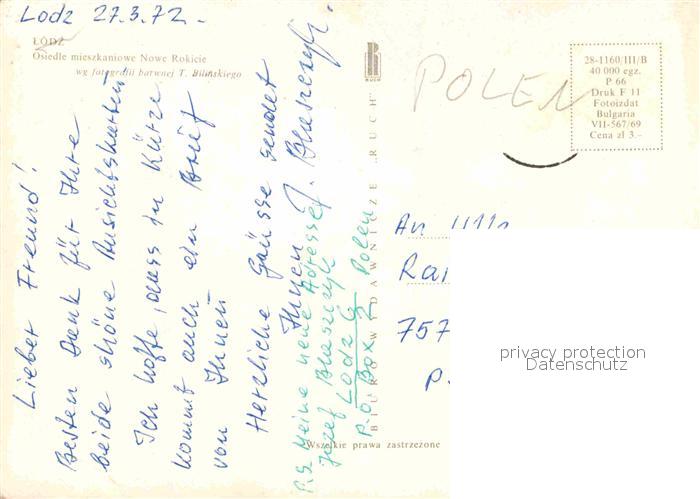 Lodz 27.3.72.-
ŁÓDŹ
Osiedle mieszkaniowe Nowe Rokicie
wg fotografii barwnej T. Bilińskiego
Lieber Freund!
Besten Dank für Ihre
beide shöne Ansichtskarten
Ich hoffe, dass in Kürze
kommt auch ein Brief
von Ihnen
Herzliche Grüsse sendet
Ihnen J. Blaszczyk.
P.S. Meine neue Adresse:
Józef Blaszczyk
Lodz 9
P.O. Box 2 Polen
BIURO WYDAWNICZE „RUCH"
Wszelkie prawa zastrzeżone
POLEN
28-1160/III/B
40 000 egz.
P 66
Druk F 11
Fotoizdat
Bulgaria
VII-567/69
Cena zł 3.-
An
Rai
757
P.
privacy protection
Datenschutz